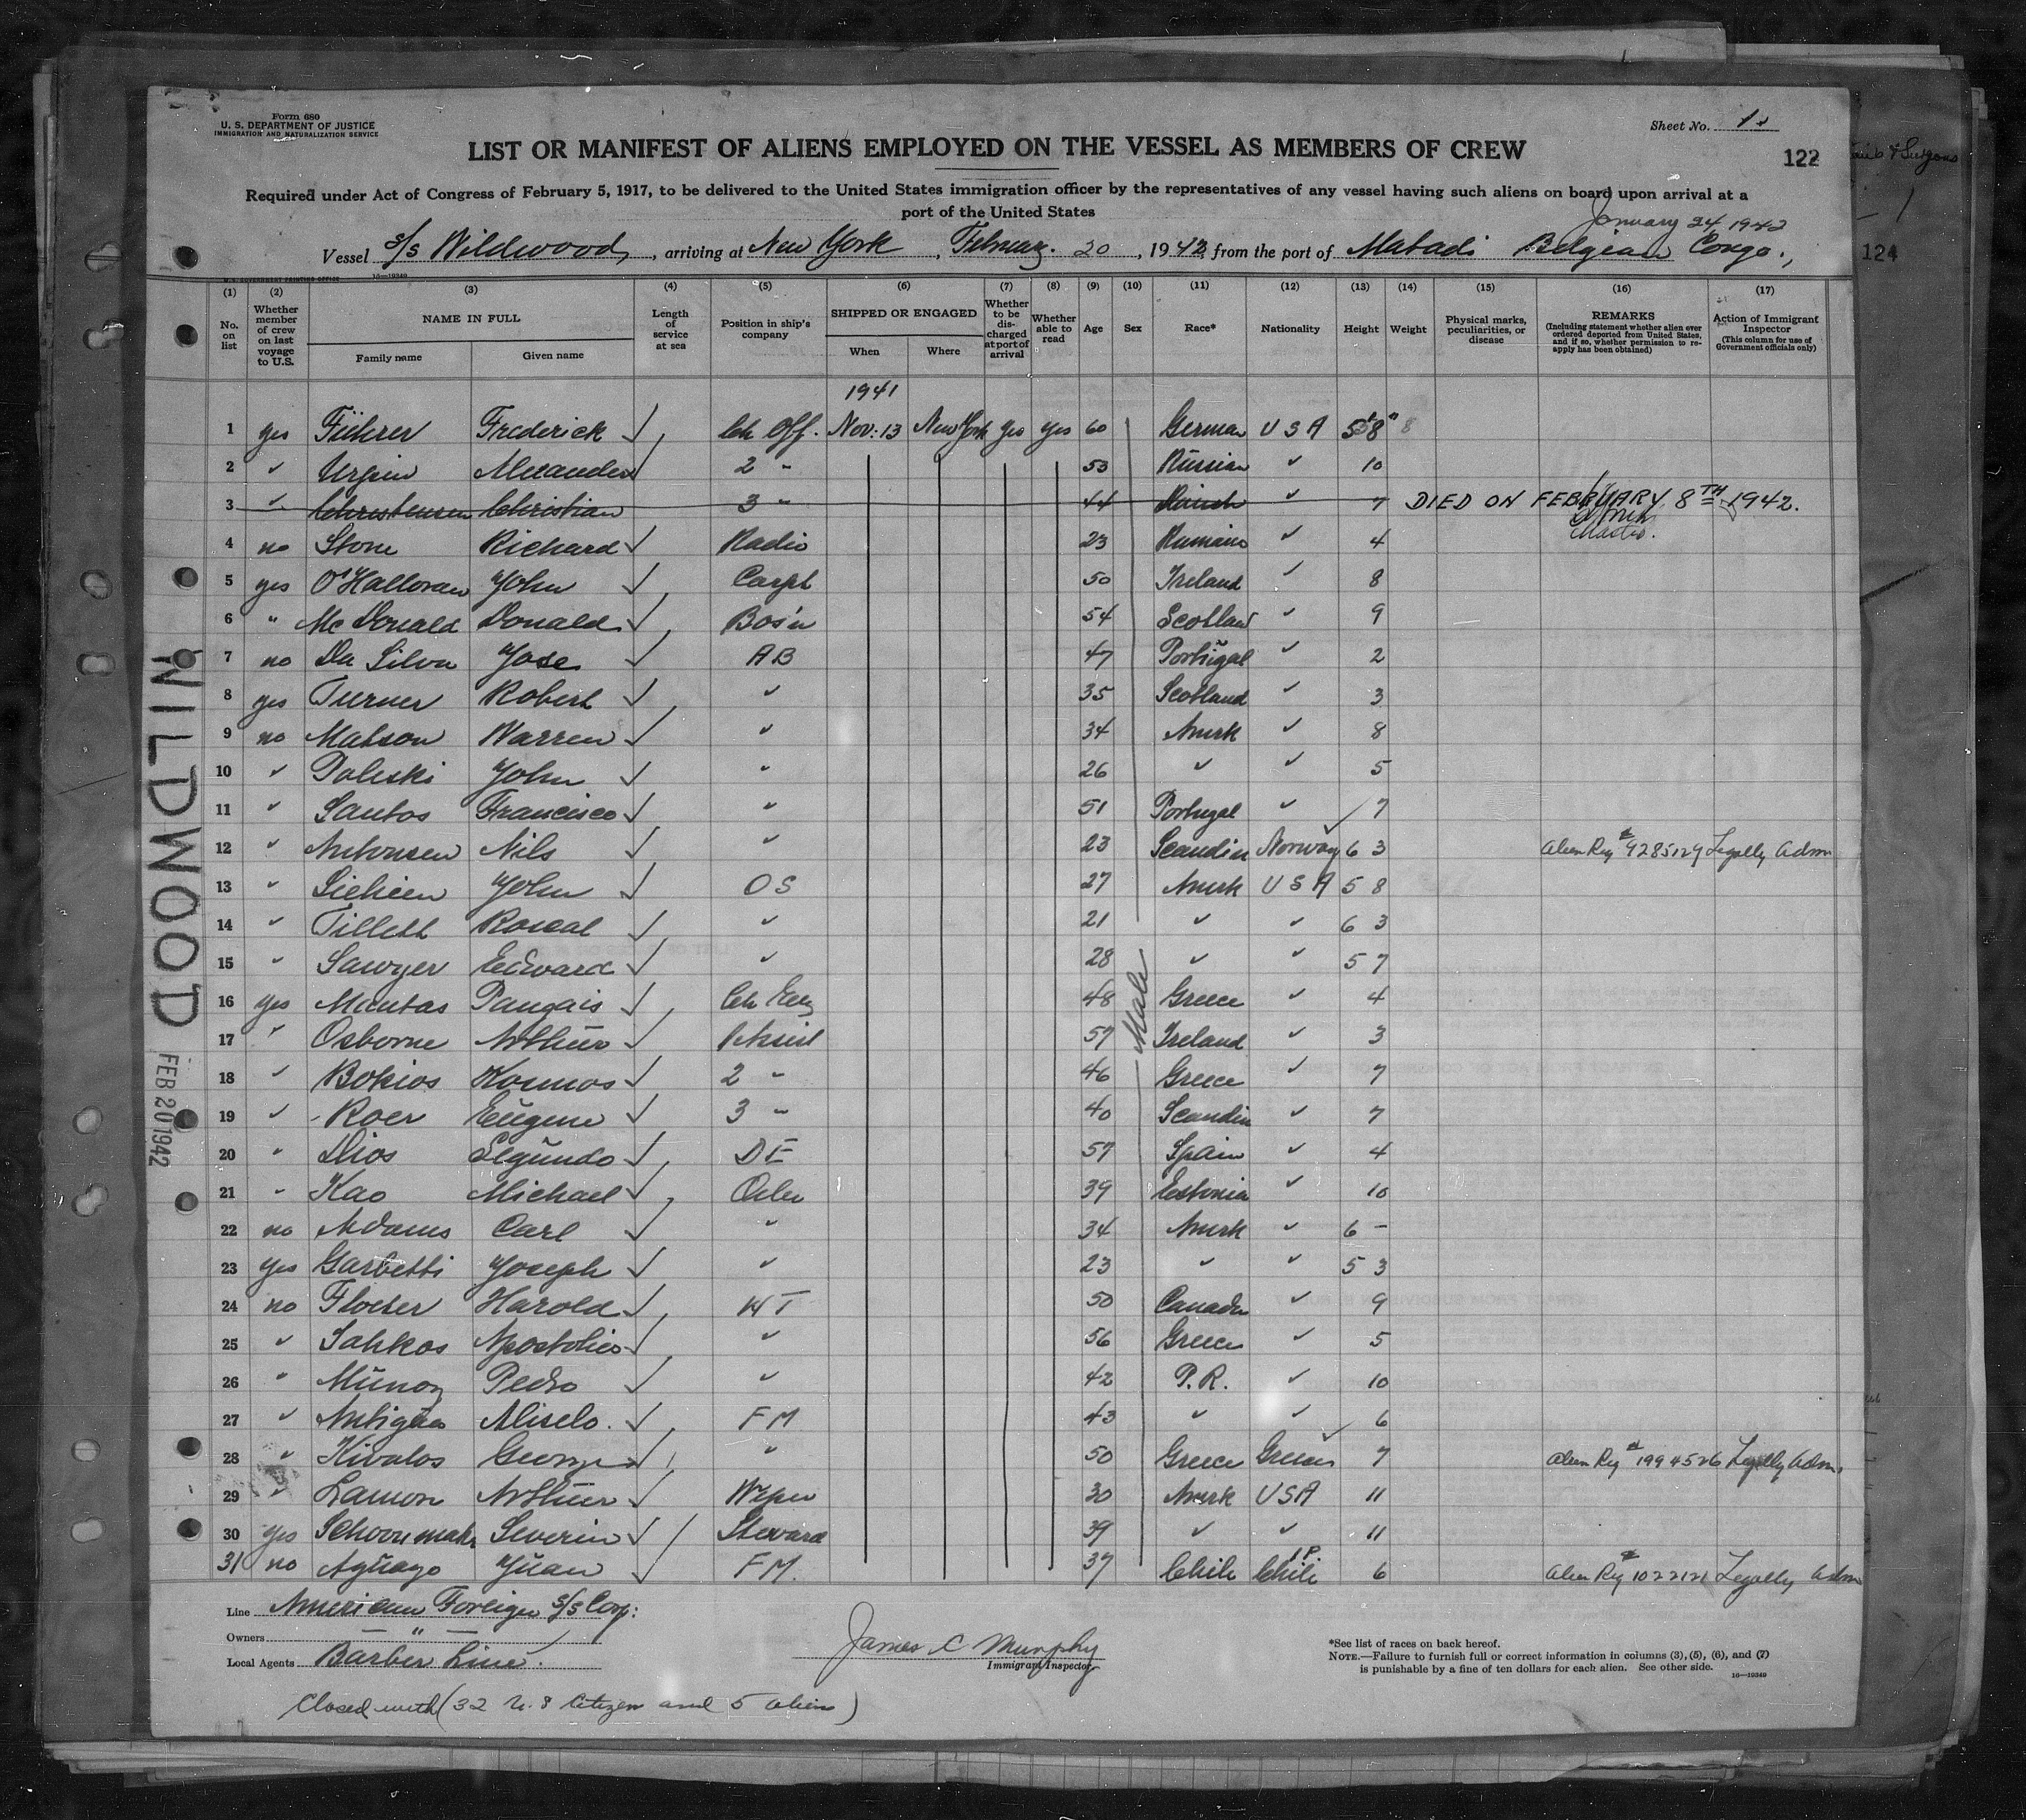 Form 680
U. S. DEPARTMENT OF JUSTICE
IMMIGRATION AND NATURALIZATION SERVICE
Sheet No. 1
LIST OR MANIFEST OF ALIENS EMPLOYED ON THE VESSEL AS MEMBERS OF CREW
122
Required under Act of Congress of February 5, 1917, to be delivered to the United States immigration officer by the representatives of any vessel having such aliens on board upon arrival at a
port of the United States
January 24, 1942
Vessel S/S Wildwood, arriving at New York, February. 20, 1942, from the port of Matadi Belgian Congo.,
124
U. S. GOVERNMENT PRINTING OFFICE 16—19349
(1) (2) (3) (4) (5) (6) (7) (8) (9) (10) (11) (12) (13) (14) (15) (16) (17)
No. on list
Whether member of crew on last voyage to U.S.
NAME IN FULL
Family name
Given name
Length of service at sea
Position in ship's company
SHIPPED OR ENGAGED
When
Where
Whether to be discharged at port of arrival
Whether able to read
Age
Sex
Race*
Nationality
Height
Weight
Physical marks, peculiarities, or disease
REMARKS
(Including statement whether alien ever ordered deported from United States, and if so, whether permission to reapply has been obtained)
Action of Immigrant Inspector
(This column for use of Government officials only)
1941
1 yes Führer Frederick ✓ Ch Off. Nov: 13 New York yes yes 60 German USA 5'8"
2 ✓ Alexander ✓ 2 " 53 Russian ✓ 10
3 ✓ Christensen Christian 3 " 44 Danish ✓ 7 DIED ON FEBRUARY 8TH 1942.
Master.
4 no Stone Richard ✓ Radio 23 ✓ 4
5 yes O'Halloran John ✓ Carpt 50 Ireland ✓ 8
6 " McDonald Donald ✓ Bos'n 54 Scotland ✓ 9
7 no Da Silva Jose ✓ AB 47 Portugal ✓ 2
8 yes Turner Robert ✓ ✓ 35 Scotland ✓ 3
9 no Matson Warren ✓ ✓ 34 Amrk ✓ 8
10 ✓ Poleski John ✓ " 26 ✓ ✓ 5
11 ✓ Santos Francisco ✓ " 51 Portugal ✓ 7
12 ✓ Nils ✓ " 23 Scandin Norway 6 3 Alien Reg # 4285129 Legally Adm
13 ✓ John ✓ OS 27 Amrk USA 5 8
14 ✓ Tillett ✓ ✓ 21 ✓ ✓ 6 3
15 " Sawyer Edward ✓ ✓ 28 " " 5 7
16 yes Mantas ✓ Ch Eng 48 Greece ✓ 4
17 ✓ Osborne Arthur ✓ 1 Assist 57 Ireland ✓ 3
18 ✓ Bokios Kosmos ✓ 2 " 46 Greece ✓ 7
19 ✓ Roer Eugene ✓ 3 " 40 Scandin ✓ 7
20 " Dios Segundo ✓ DE 57 Spain ✓ 4
21 " Kao Michael ✓ Oiler 39 Estonia ✓ 10
22 no Adams Carl ✓ " 34 Amrk ✓ 6 –
23 yes Garbetti Joseph ✓ ✓ 23 " " 5 3
24 no Harold ✓ WT 50 Canada ✓ 9
25 ✓ Apostolico ✓ ✓ 56 Greece ✓ 5
26 " Munoz Pedro ✓ ✓ 42 P.R. ✓ 10
27 ✓ ✓ FM 43 ✓ ✓ 6
28 " Kivalos George ✓ " 50 Greece Greece 7 Alien Reg # 1994526 Legally Adm.
29 " Lamon Arthur ✓ Wiper 30 Amrk USA 11
30 yes Schoonmaker Severin ✓ Steward 39 ✓ ✓ 11
31 no Aguayo Juan ✓ FM. 37 Chile Chile 6 Alien Reg # 1022121 Legally Adm
Male
WILDWOOD
FEB 20 1942
Line American Foreign S/S Corp:
Owners — " —
Local Agents Barber Line.
James C Murphy
Immigrant Inspector
*See list of races on back hereof.
NOTE.—Failure to furnish full or correct information in columns (3), (5), (6), and (7)
is punishable by a fine of ten dollars for each alien. See other side. 16—19349
Closed with (32 U.S Citizen and 5 aliens)